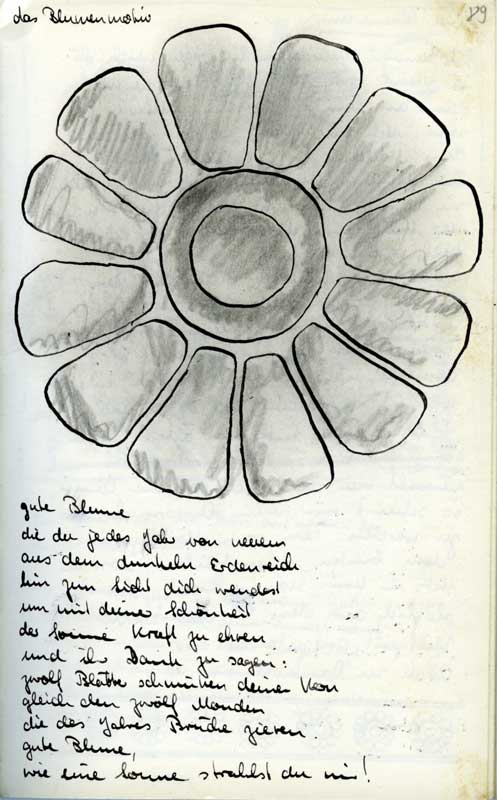 das Blumenmotiv
89
gute Blume
die du jedes Jahr von neuem
aus dem dunkeln Erdenreich
hin zum Licht dich wendest
um mit deiner Schönheit
der Sonne Kraft zu ehren
und ihr Dank zu sagen:
zwölf Blätter schmücken deinen
gleich den zwölf Monden
die des Jahres zieren
gute Blume,
wie eine Sonne strahlst du mir!